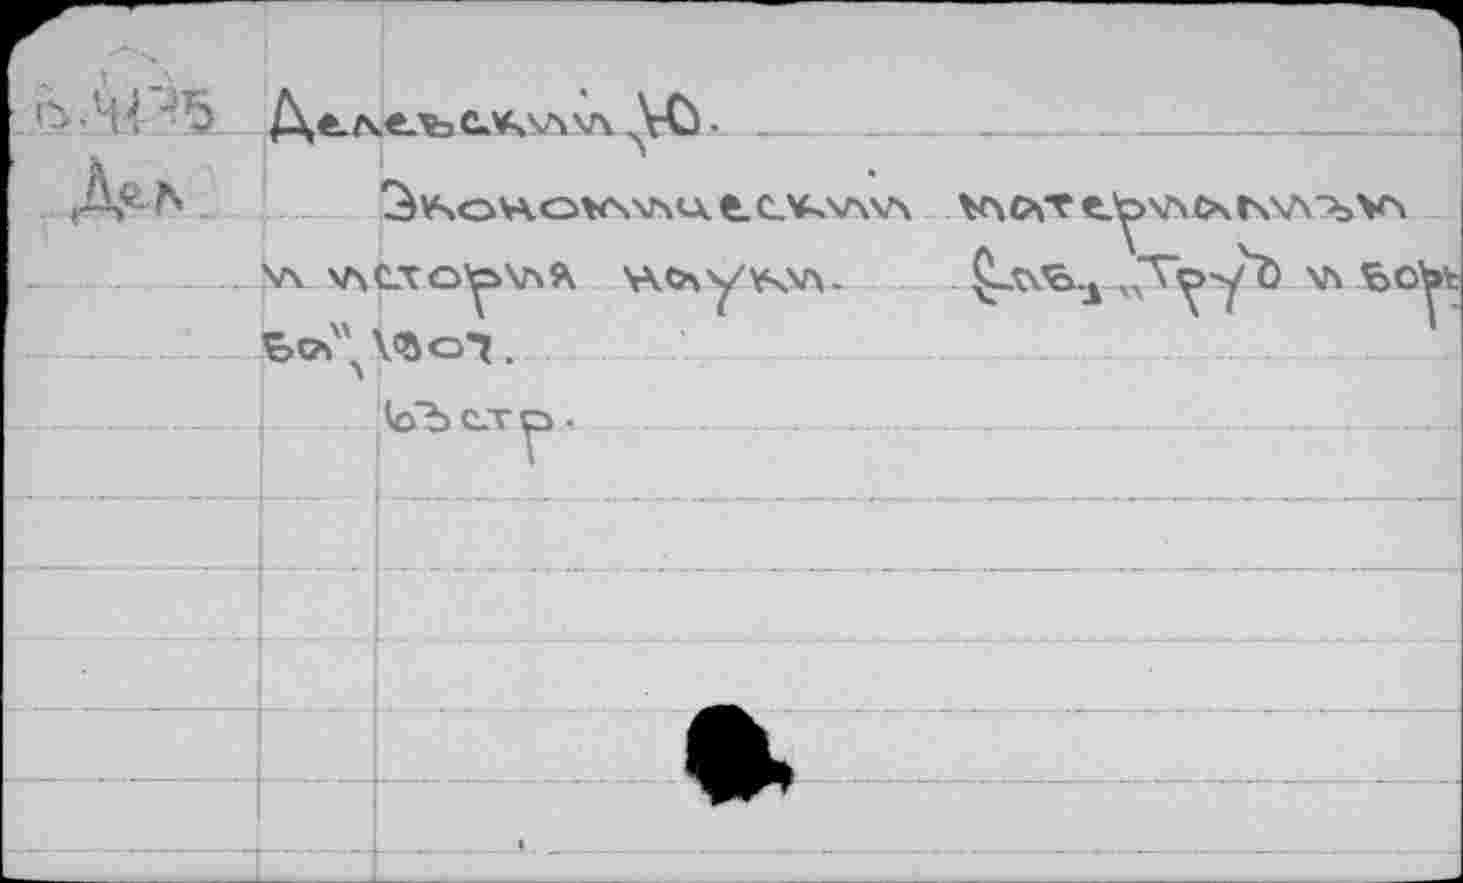 Делевский, Ю.
Дел
Экономический материализм
и история науки. Спб, „Труд и борь
ба", 1907.
63 стр.